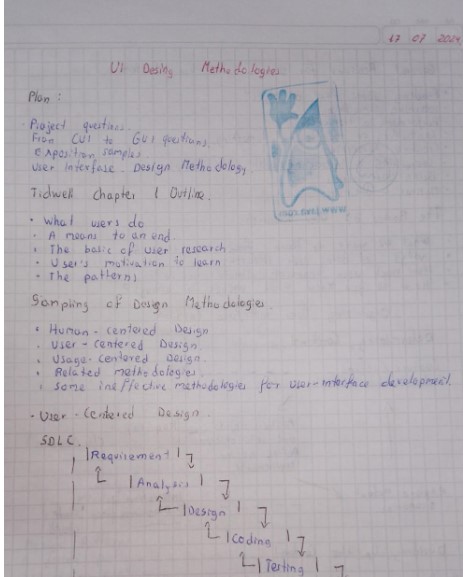 17 07 2024
UI Desing Methodologies
Plan:
Project questions.
From CUI to GUI questions.
Exposition samples.
User Interface. Design Methodology
Tidwell chapter 1 Outline.
• What users do
• A means to an end.
• The basic of user research
• User's motivation to learn
• The patterns
Sampling of Design Methodologies.
• Human-centered Design
• User-centered Design.
• Usage-centered Design.
• Related methodologies.
• Some ineffective methodologies for user-interface development.
• User-Centered Design.
SDLC.
Requirement
Analysis
Design
Coding
Testing